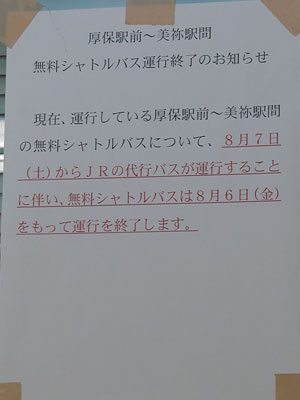 厚保駅前~美祢駅間
無料シャトルバス運行終了のお知らせ
現在、運行している厚保駅前~美祢駅間
の無料シャトルバスについて、8月7日
(土)からJRの代行バスが運行すること
に伴い、無料シャトルバスは8月6日(金)
をもって運行を終了します。